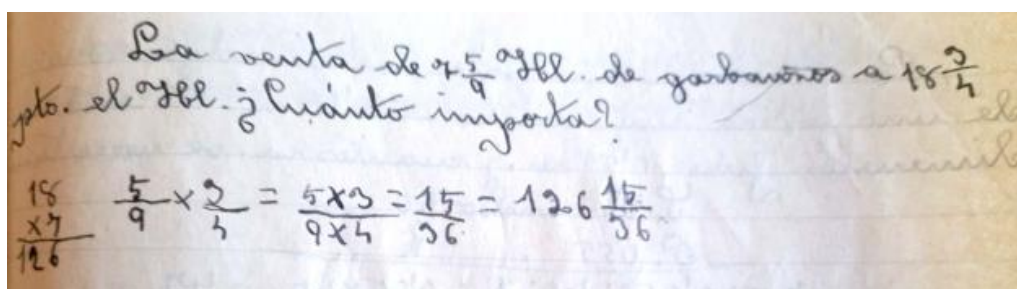 La venta de 7 5/9 Hbl. de garbanzos a 18 3/4
pto. el Hbl. ¿Cuánto importa?
18 5/9 × 3/4 = 5×3/9×4 = 15/36 = 126 15/36
×7
126